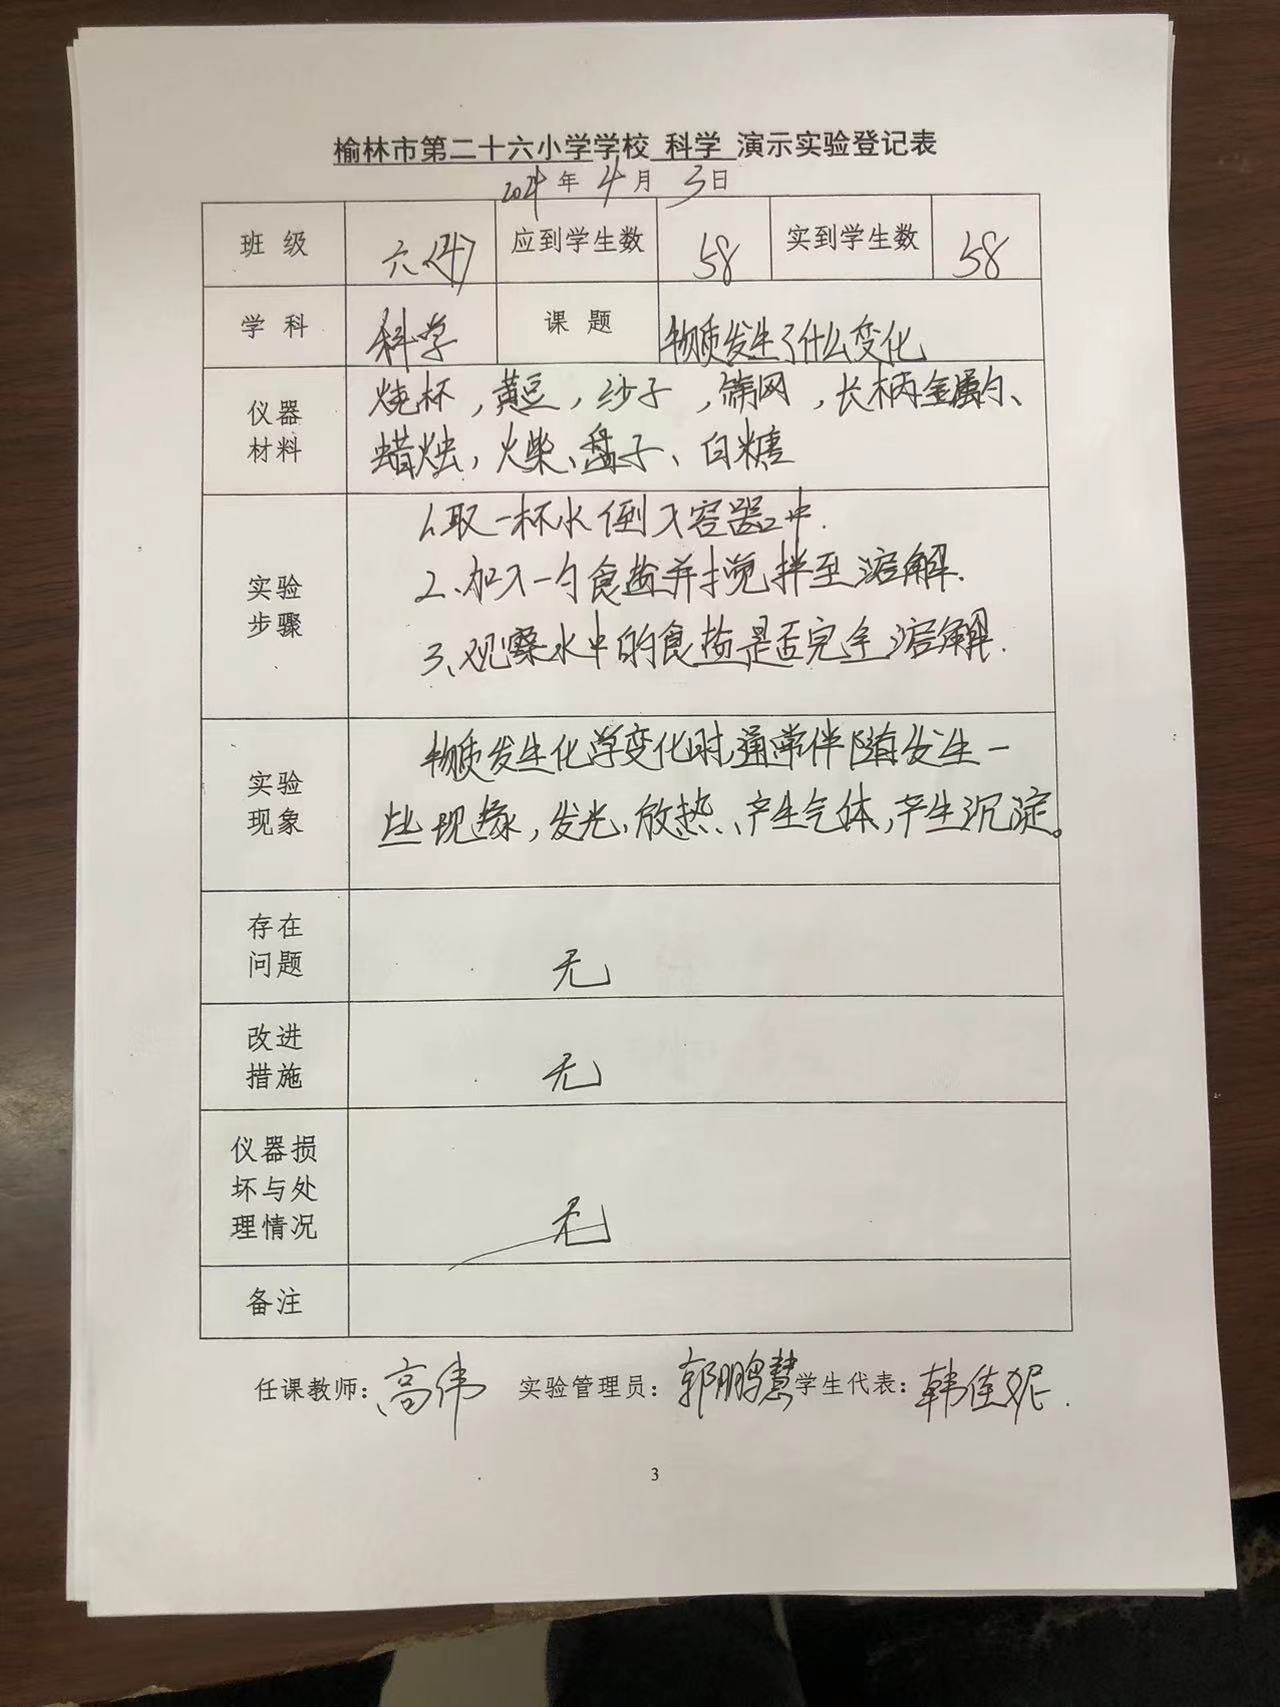 榆林市第二十六小学学校 科学 演示实验登记表
2024年 4月 3日
班级 六(4) 应到学生数 58 实到学生数 58
学科 科学 课题 物质发生了什么变化
仪器材料 烧杯,黄豆,沙子,筛网,长柄金属勺、
蜡烛,火柴、盘子、白糖
实验步骤 1.取一杯水倒入容器中.
2、加入一勺食盐并搅拌至溶解.
3、观察水中的食盐是否完全溶解.
实验现象 物质发生化学变化时,通常伴随发生一
些现象,发光,放热、产生气体,产生沉淀。
存在问题 无
改进措施 无
仪器损坏与处理情况 无
备注
任课教师:高伟 实验管理员:郭鹏慧 学生代表:韩佳妮.
3